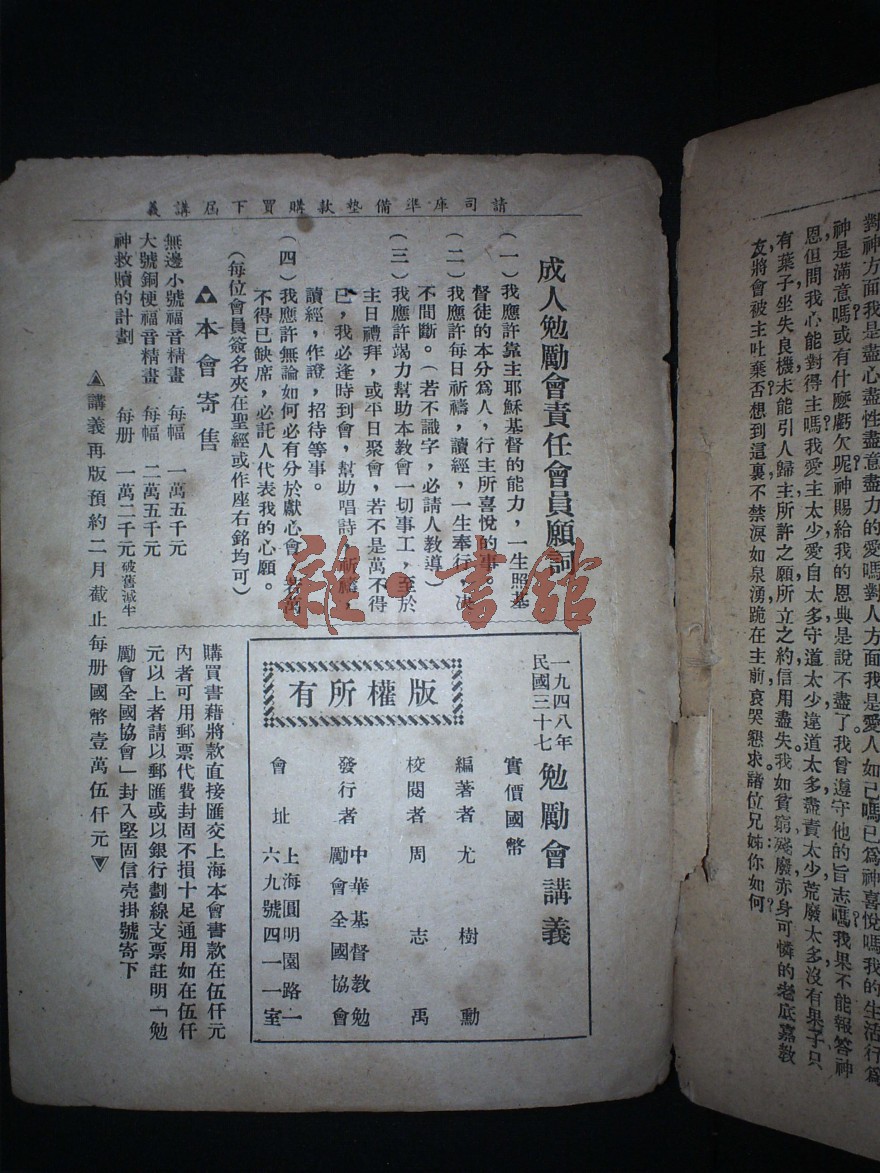 對神方面我是盡心盡性盡意盡力的愛嗎對人方面我是愛人如己嗎已為神喜悅嗎我的生活行為
神是滿意嗎?或有什麼虧欠呢?神賜給我的恩典是說不盡了。我曾遵守他的旨志嗎?我果不能報答神
恩,但問我心能對得主嗎?我愛主太少,愛自太多,守道太少,違道太多,盡責太少,荒廢太多,沒有果子只
有葉子,坐失良機,未能引人歸主,所許之願,所立之約,信用盡失,我如貧窮殘廢赤身可憐的老底嘉教
友,將會被主吐棄否?想到這裏不禁淚如泉湧,跪在主前哀哭懇求,諸位兄姊:你如何?
請司庫準備墊款購買下屆講義
成人勉勵會責任會員願詞
(一)我應許靠主耶穌基督的能力,一生照基
督徒的本分爲人,行主所喜悅的事。
(二)我應許每日祈禱,讀經,一生奉行,决
不間斷。(若不識字,必請人教導)
(三)我應許竭力幫助本教會一切事工,至於
主日禮拜,或平日聚會,若不是萬不得
已,我必逢時到會,幫助唱詩,祈禱,
讀經,作證,招待等事。
(四)我應許無論如何必有分於獻心會,若萬
不得已缺席,必託人代表我的心願。
(每位會員簽名夾在聖經或作座右銘均可)
本會寄售
無邊小號福音精畫 每幅 一萬五千元
大號銅梗福音精畫 每幅 二萬五千元
神救贖的計劃 每册 一萬二千元破舊減半
講義再版預約二月截止每册國幣壹萬伍仟元
一九四八年
民國三十七
勉勵會講義
實價國幣
編著者 尤樹勳
校閱者 周志禹
發行者 中華基督教勉
勵會全國協會
會址 上海圓明園路一
六九號四一一室
版權所有
購買書藉將款直接匯交上海本會書款在伍仟元
內者可用郵票代費封固不損十足通用如在伍仟
元以上者請以郵匯或以銀行劃線支票註明「勉
勵會全國協會」封入堅固信壳掛號寄下
雜·書館